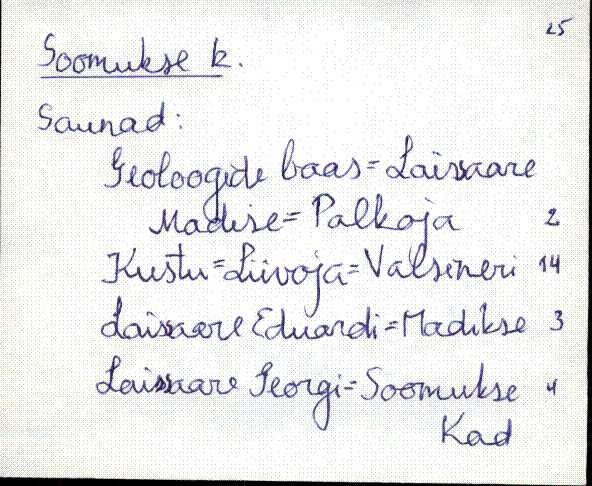 25
Soomukse k.
Saunad:
Geoloogide baas=Laissaare
Madise=Palkoja 2
Kustu=Liivoja=Valsineri 14
Laissaare Eduardi=Madikse 3
Laissaare Georgi=Soomukse 4
Kad